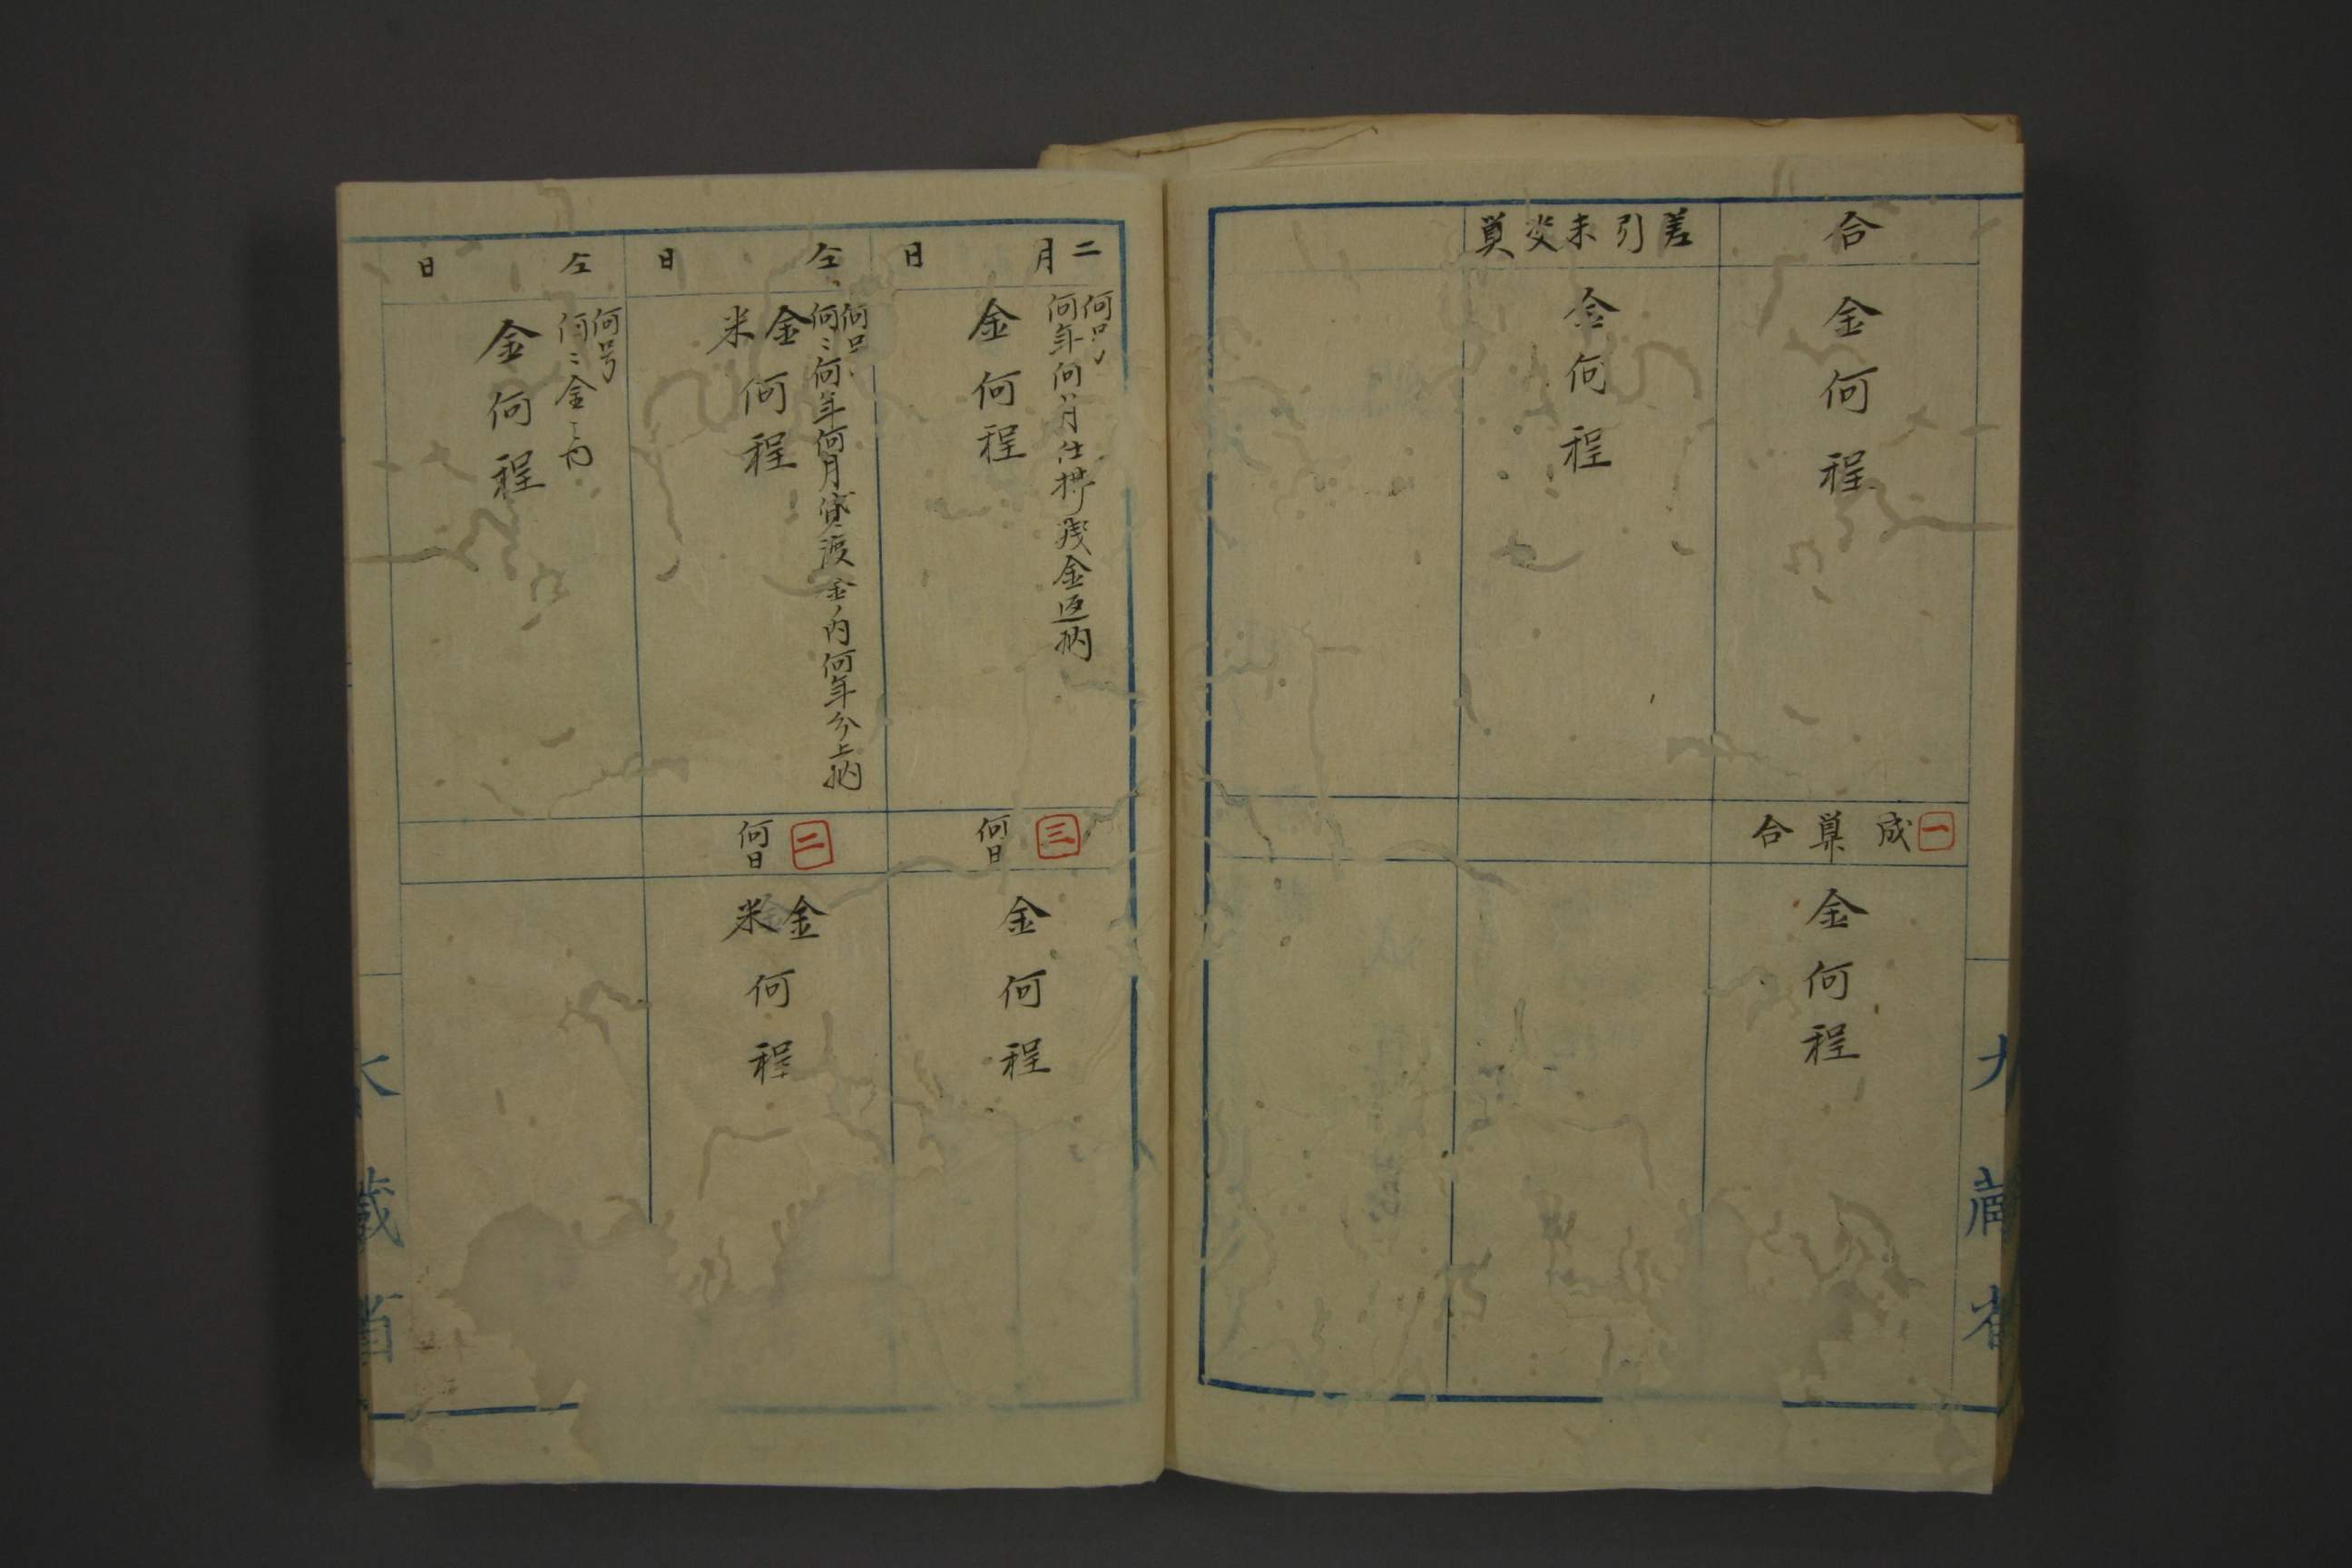 合
金何程
一
成算合
金何程
差引未立算
金何程
大蔵省
二月 日
何号
何年何ヶ月仕拂残金返納
金何程
三
何日
金何程
仝 日
何号
何〻何年何月貸渡金ノ内何年分上納
金米何程
二
何日
金米何程
仝 日
何号
何〻金ノ内
金何程
大蔵省